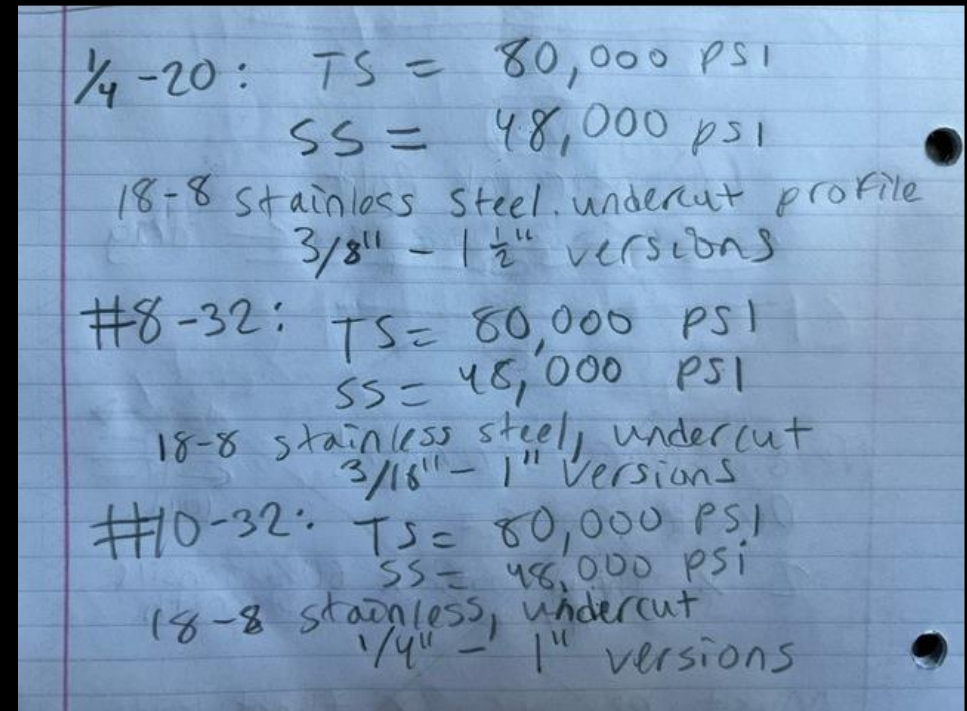 1/4-20: TS = 80,000 PSI
SS = 48,000 psi
18-8 stainless steel. undercut profile
3/8" - 1 1/2" versions
#8-32: TS = 80,000 PSI
SS = 48,000 PSI
18-8 stainless steel, undercut
3/16" - 1" versions
#10-32: TS = 80,000 PSI
SS = 48,000 PSi
18-8 stainless, undercut
1/4" - 1" versions